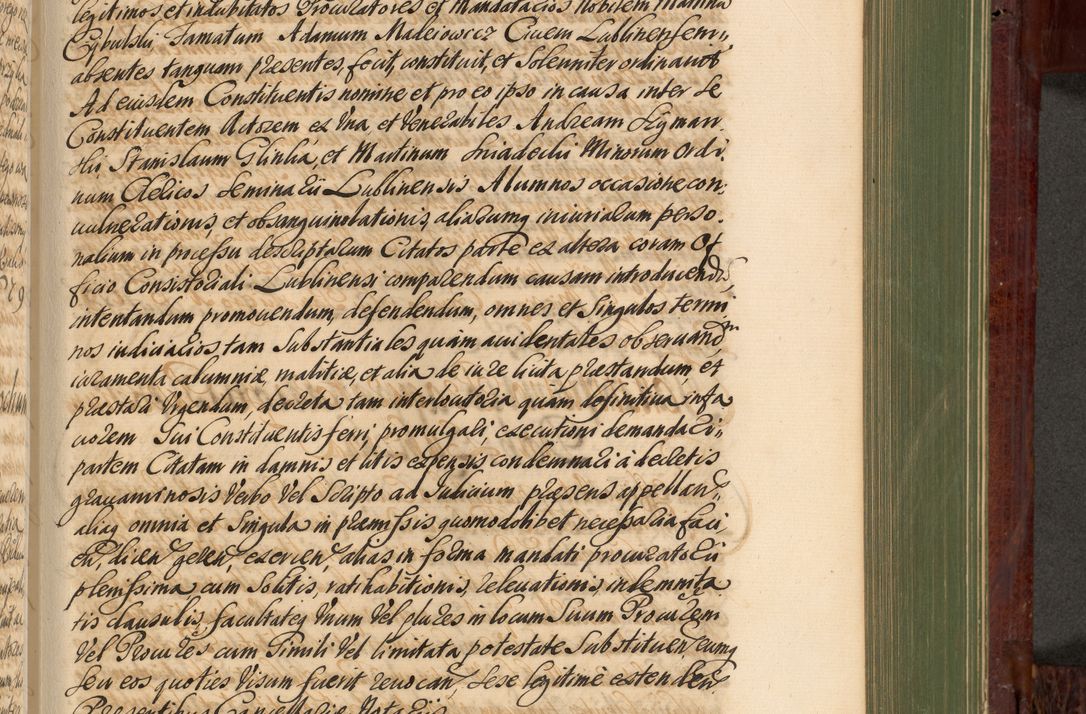 legitimos et indubitatos Procuratores et Mandatarios Nobilem
Cybulski, Famatum Adamum Maleiowicz Civem Lublinensem,,
absentes tanquam præsentes, fecit, constituit, et Solenniter ordinavit
Ad eiusdem Constituentis nomine et pro eo ipso in causa inter se
Constituentem Actorem ex Una, et Venerabiles Andream Szyman„
ski, Stanislaum Glinka, et Martinum Sniadecki Minorum Ordi„
num Clericos Seminarii Lublinensis Alumnos occasione con„
vulnerationis, et obsanguinolationis, aliarumq iniuriarum perso„
nalium in processu descriptarum Citatos parte ex altera coram Of
ficio Consistoriali Lublinensi comparendum causam introducend
intentandum promovendum, defendendum, omnes et Singulos termi
nos iudiciarios tam Substantiales quam accidentales observand
iuramenta calumniæ, malitiæ, et alia de iure licita præstandum, et
præstari Urgendum, decreta tam interlocutoria quam definitiva in fa
vorem Sui Constituentis ferri, promulgari, executioni demandari„
partem Citatam in damnis et litis expensis condemnari à decretis
gravaminosis Verbo Vel Scripto ad Judicium præsens appellan,
aliaq omnia et Singula in præmissis quomodolibet necessaria faci„
en, dicen, geren, exercen, alias in forma mandati procuratorii
plenissima cum Solitis, ratihabitionis, relevationis, indemnita
tis clausulis, facultateq Unum Vel plures in locum Suum Procurem
Vel Procures cum Simili Vel limitata potestate Substituen, eumq
Seu eos quoties Visum fuerit revocan, Sese legitimè
Præsentibus Cancellariæ Notariis